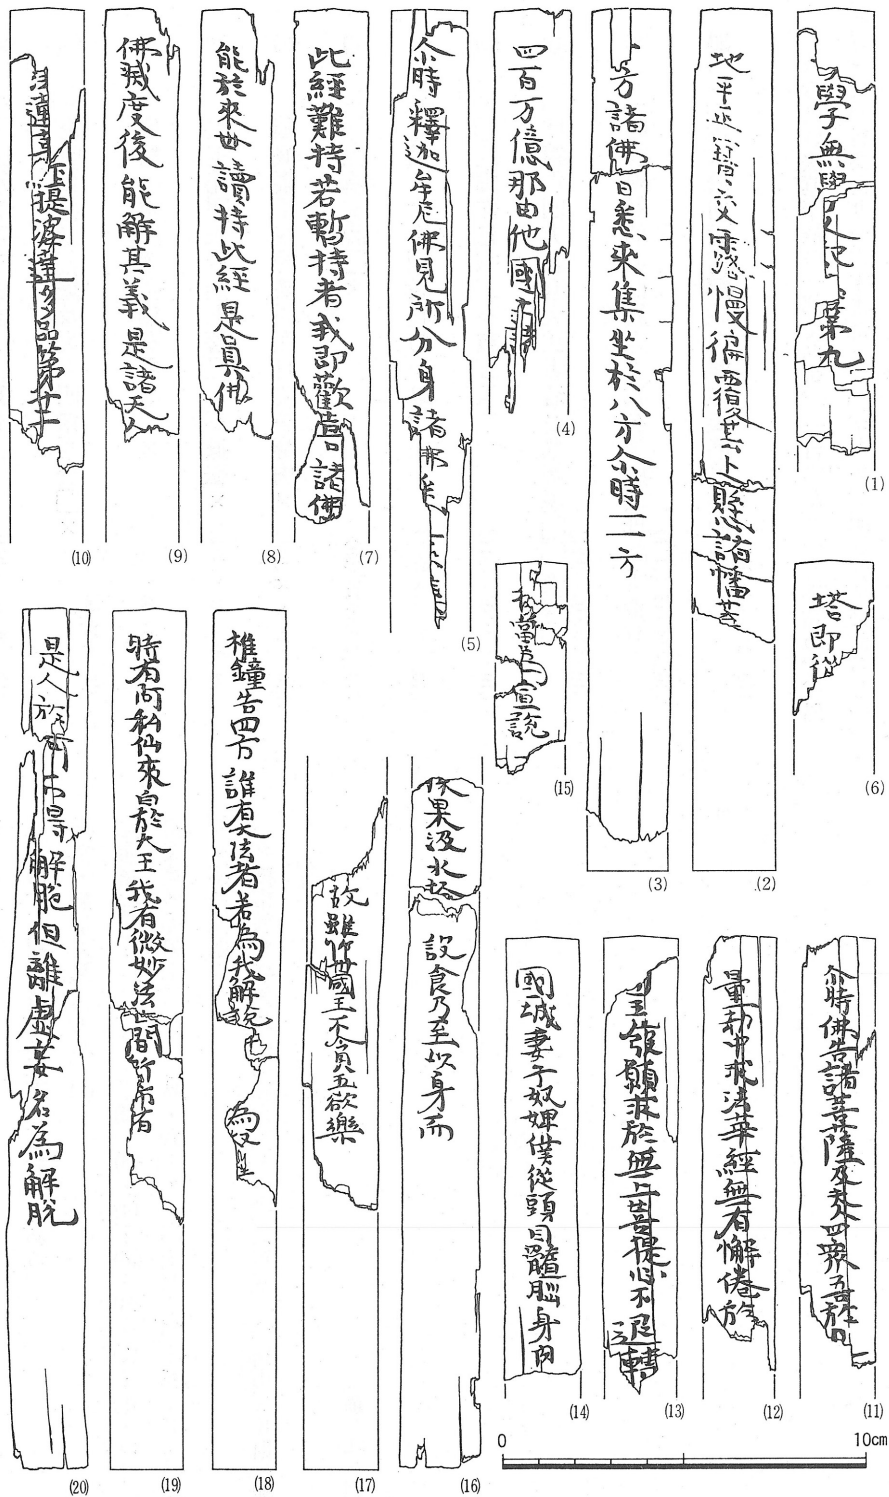 學無學人記品第九
(1)
地平正寶交露慢徧覆其上懸諸幡蓋
(2)
方諸佛皆悉來集坐於八方尒時一一方
(3)
四百万億那由他國土諸
(4)
尒時釋迦牟尼佛見所分身諸佛
(5)
塔即從
(6)
此經難持若暫持者我即歡喜諸佛
(7)
能於來世讀持此經是真佛
(8)
佛滅度後能解其義是諸天人
(9)
法蓮華經提婆達多品第十二
(10)
尒時佛告諸菩薩及天人四衆吾於
(11)
量劫中求法華經無有懈倦於
(12)
王發願求於無上菩提心不退轉
(13)
國城妻子奴婢僕從頭目髓腦身肉
(14)
當為宣說
(15)
採果汲水拾 設食乃至以身而
(16)
故雖作世國王不貪五欲樂
(17)
椎鐘告四方誰有大法者若為我解說 為
(18)
時有阿私仙來白於大王我有微妙法世間所希有
(19)
是人於何而得解脫但離虛妄名為解脫
(20)
0 10cm